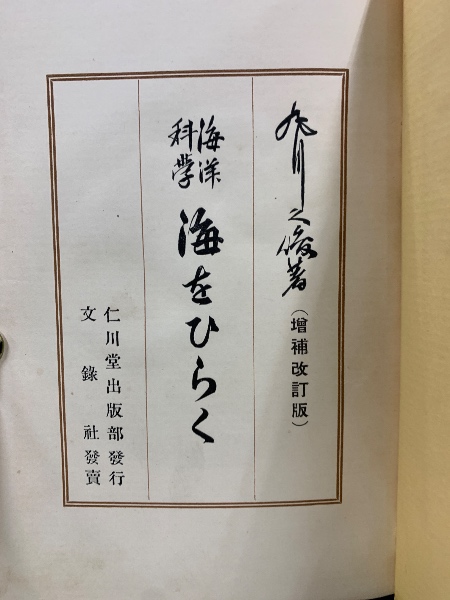 丸川久俊著
（增補改訂版）
海洋
科學
海をひらく
仁川堂出版部發行
文錄社發賣